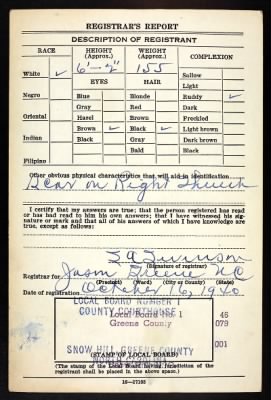 REGISTRAR'S REPORT
DESCRIPTION OF REGISTRANT
RACE HEIGHT (Approx.) WEIGHT (Approx.) COMPLEXION
6'-2" 155
White ✓ Sallow
EYES HAIR Light
Negro Blue Blonde Ruddy ✓
Gray Red Dark
Oriental Hazel Brown Freckled
Brown ✓ Black ✓ Light brown
Indian Black Gray Dark brown
Bald Black
Filipino
Other obvious physical characteristics that will aid in identification
Scar on Right
I certify that my answers are true; that the person registered has read
or has had read to him his own answers; that I have witnessed his sig-
nature or mark and that all of his answers of which I have knowledge are
true, except as follows:
(Signature of registrar)
Registrar for Jason Greene NC
(Precinct) (Ward) (City or county) (State)
Date of registration October 16, 1940
LOCAL BOARD NUMBER 1
COUNTY COURTHOUSE
Local Board No. 1 46
Greene County 079
001
SNOW HILL, GREENE COUNTY
NORTH CAROLINA
(STAMP OF LOCAL BOARD)
(The stamp of the Local Board having jurisdiction of the
registrant shall be placed in the above space.)